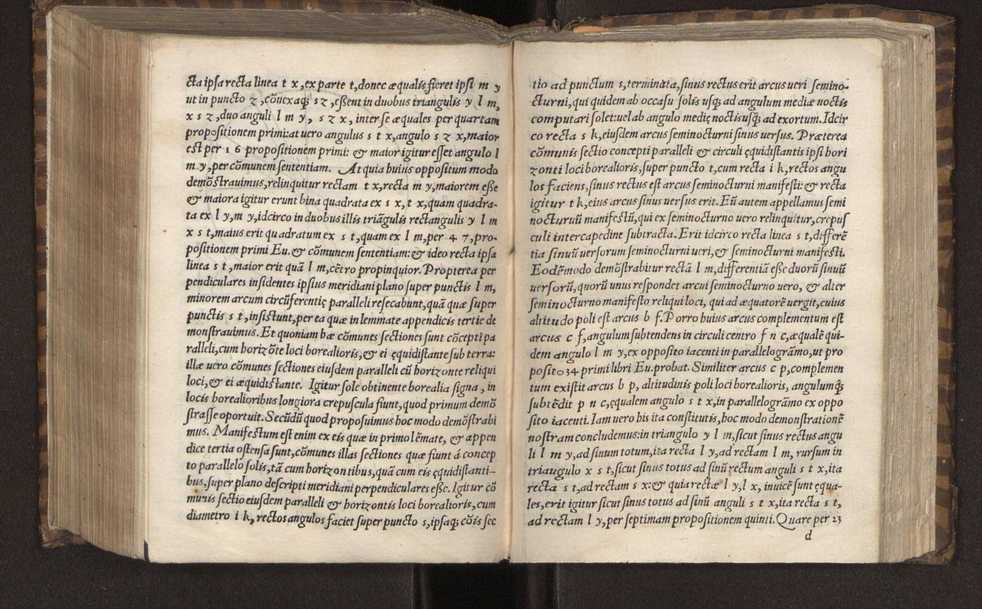 cta ipsa recta linea t x, ex parte t, donec æqualis fieret ipsi m y
ut in puncto z, cõnexaq; s z, essent in duobus triangulis y l m,
x s z, duo anguli l m y, s z x, inter se æquales per quartam
propositionem primi: at uero angulus s t x, angulo s z x, maior
est per 16 propositionem primi: & maior igitur esset angulo l
m y, per cõmunem sententiam. At quia huius oppositum modo
demõstrauimus, relinquitur rectam t x, recta m y, maiorem esse
& maiora igitur erunt bina quadrata ex s x, t x, quam quadra-
ta ex l y, m y, idcirco in duobus illis triãgulis rectangulis y l m
x s t, maius erit quadratum ex s t, quam ex l m, per 47, pro-
positionem primi Eu. & cõmunem sententiam: & ideo recta ipsa
linea s t, maior erit quã l m, cẽtro propinquior. Propterea per
pendiculares insidentes ipsius meridiani plano super punctis l m,
minorem arcum circũferentię paralleli resecabunt, quã quæ super
punctis s t, insistunt, per ea quæ in lemmate appendicis tertie de
monstrauimus. Et quoniam hæ cõmunes sectiones sunt cõcepti pa
ralleli, cum horizõte loci borealioris, & ei ęquidistante sub terra:
illæ uero cõmunes sectiones eiusdem paralleli cũ horizonte reliqui
loci, & ei æquidistante. Igitur sole obtinente borealia signa, in
locis borealioribus longiora crepuscula fiunt, quod primum demõ
strasse oportuit. Secũdũ quod proposuimus hoc modo demõstrabi
mus. Manifestum est enim ex eis quæ in primo lẽmate, & appen
dice tertia ostensa sunt, cõmunes illas sectiones quæ fiunt á concep
to parallelo solis, tã cum horizontibus, quã cum eis ęquidistanti-
bus, super plano descripti meridiani perpendiculares esse. Igitur cõ
munis sectio eiusdem paralleli & horizontis loci borealioris, cum
diametro i k, rectos angulos faciet super puncto s, ipsaq; cõis sec
tio ad punctum s, terminata, sinus rectus erit arcus ueri semino-
cturni, qui quidem ab occasu solis usq; ad angulum mediæ noctis
computari solet: uel ab angulo medię noctis usq; ad exortum. Idcir
co recta s k, eiusdem arcus seminocturni sinus uersus. Præterea
cõmunis sectio concepti paralleli & circuli ęquidistantis ipsi hori
zonti loci borealioris, super puncto t, cum recta i k, rectos angu
los faciens, sinus rectus est arcus seminocturni manifesti: & recta
igitur t k, eius arcus sinus uersus erit. Eũ autem appellamus semi
nocturnũ manifestũ, qui ex seminocturno uero relinquitur, crepus
culi intercapedine subtracta. Erit idcirco recta linea s t, differẽ
tia sinuũ uersorum seminocturni ueri, & seminocturni manifesti.
Eodẽmodo demõstrabitur rectã l m, differentiã esse duorũ sinuũ
uersorũ, quorũ unus respondet arcui seminocturno uero, & alter
seminocturno manifesto reliqui loci, qui ad æquatorẽ uergit, cuius
altitudo poli est arcus b f. Porro huius arcus complementum est
arcus c f, angulum subtendens in circuli centro f n c, æqualẽ qui-
dem angulo l m y, ex opposito iacenti in parallelogrãmo, ut pro
posit o 34 primi libri Eu. probat. Similiter arcus c p, complemen
tum existit arcus b p, altitudinis poli loci borealioris, angulumq;
subtẽdit p n c, ęqualem angulo s t x, in parallelogrãmo ex oppo
sito iacenti. Iam uero his ita constitutis, hoc modo demonstrationẽ
nostram concludemus: in triangulo y l m, sicut sinus rectus angu
li l m y, ad sinum totum, ita recta l y, ad rectam l m, rursum in
triangulo x s t, sicut sinus totus ad sinũ rectum anguli s t x, ita
recta s t, ad rectam s x: & quia rectæ l y, l x, inuicẽ sunt ęqua-
les, erit igitur sicut sinus totus ad sinũ anguli s t x, ita recta s t,
ad rectam l y, per septimam propositionem quinti. Quare per 23
d